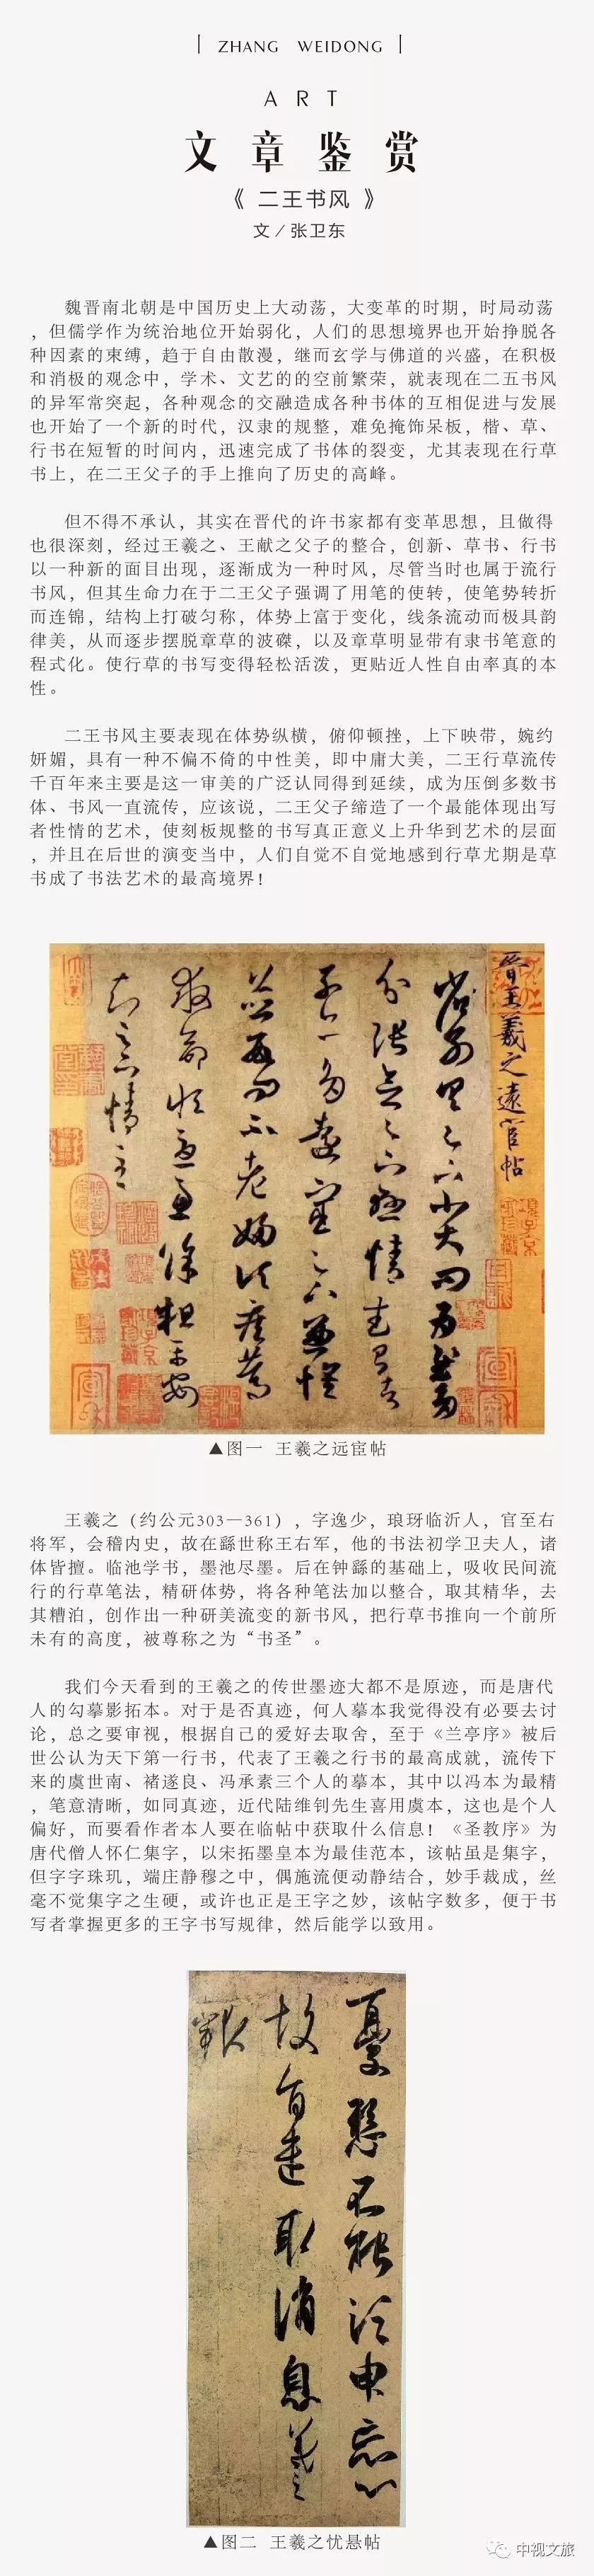 ZHANG WEIDONG
ART
文章鉴赏
《 二王书风 》
文／张卫东
魏晋南北朝是中国历史上大动荡，大变革的时期，时局动荡
，但儒学作为统治地位开始弱化，人们的思想境界也开始挣脱各
种因素的束缚，趋于自由散漫，继而玄学与佛道的兴盛，在积极
和消极的观念中，学术、文艺的的空前繁荣，就表现在二五书风
的异军常突起，各种观念的交融造成各种书体的互相促进与发展
也开始了一个新的时代，汉隶的规整，难免掩饰呆板，楷、草、
行书在短暂的时间内，迅速完成了书体的裂变，尤其表现在行草
书上，在二王父子的手上推向了历史的高峰。
但不得不承认，其实在晋代的许书家都有变革思想，且做得
也很深刻，经过王羲之、王献之父子的整合，创新、草书、行书
以一种新的面目出现，逐渐成为一种时风，尽管当时也属于流行
书风，但其生命力在于二王父子强调了用笔的使转，使笔势转折
而连锦，结构上打破匀称，体势上富于变化，线条流动而极具韵
律美，从而逐步摆脱章草的波磔，以及章草明显带有隶书笔意的
程式化。使行草的书写变得轻松活泼，更贴近人性自由率真的本
性。
二王书风主要表现在体势纵横，俯仰顿挫，上下映带，婉约
妍媚，具有一种不偏不倚的中性美，即中庸大美，二王行草流传
千百年来主要是这一审美的广泛认同得到延续，成为压倒多数书
体、书风一直流传，应该说，二王父子缔造了一个最能体现出写
者性情的艺术，使刻板规整的书写真正意义上升华到艺术的层面
，并且在后世的演变当中，人们自觉不自觉地感到行草尤期是草
书成了书法艺术的最高境界！
晋王羲之远宦帖
▲图一 王羲之远宦帖
王羲之（约公元303—361），字逸少，琅玡临沂人，官至右
将军，会稽内史，故在繇世称王右军，他的书法初学卫夫人，诸
体皆擅。临池学书，墨池尽墨。后在钟繇的基础上，吸收民间流
行的行草笔法，精研体势，将各种笔法加以整合，取其精华，去
其糟泊，创作出一种研美流变的新书风，把行草书推向一个前所
未有的高度，被尊称之为“书圣”。
我们今天看到的王羲之的传世墨迹大都不是原迹，而是唐代
人的勾摹影拓本。对于是否真迹，何人摹本我觉得没有必要去讨
论，总之要审视，根据自己的爱好去取舍，至于《兰亭序》被后
世公认为天下第一行书，代表了王羲之行书的最高成就，流传下
来的虞世南、褚遂良、冯承素三个人的摹本，其中以冯本为最精
，笔意清晰，如同真迹，近代陆维钊先生喜用虞本，这也是个人
偏好，而要看作者本人要在临帖中获取什么信息！《圣教序》为
唐代僧人怀仁集字，以宋拓墨皇本为最佳范本，该帖虽是集字，
但字字珠玑，端庄静穆之中，偶施流便动静结合，妙手裁成，丝
毫不觉集字之生硬，或许也正是王字之妙，该帖字数多，便于书
写者掌握更多的王字书写规律，然后能学以致用。
憂懸不能須申忘心
故旨遣取消息羲之
▲图二 王羲之忧悬帖
中视文旅